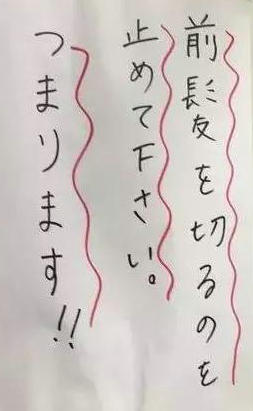 前髪を切るのを
止めて下さい。
つまります!!